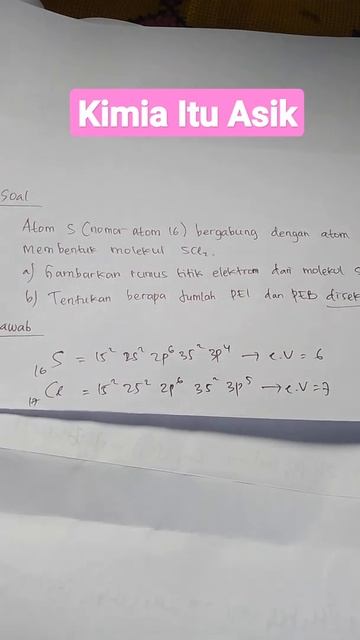 Kimia Itu Asik
Soal
Atom S (nomor atom 16) bergabung dengan atom
membentuk molekul SCl₂.
a) Gambarkan rumus titik elektron dari molekul S
b) Tentukan berapa jumlah PEI dan PEB disek
awab
₁₆S = 1s² 2s² 2p⁶ 3s² 3p⁴ → e.V = 6
₁₇Cl = 1s² 2s² 2p⁶ 3s² 3p⁵ → e.V = 7